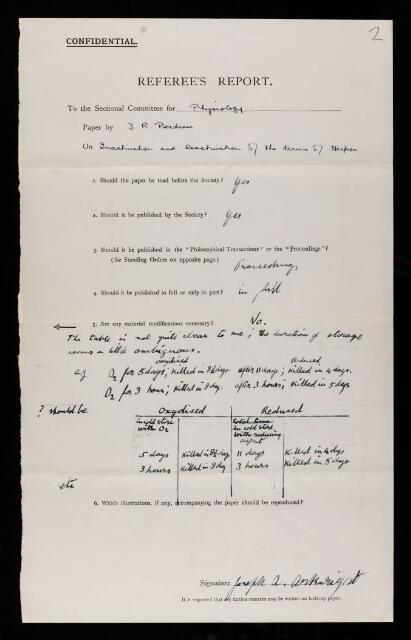 2
CONFIDENTIAL.
REFEREE'S REPORT.
To the Sectional Committee for Physiology
Paper by J. R. Perdrau
On Inactivation and Reactivation of the Virus of Herpes.
1. Should the paper be read before the Society? Yes
2. Should it be published by the Society? Yes
3. Should it be published in the "Philosophical Transactions" or the "Proceedings"?
(See Standing Orders on opposite page.)
Proceedings
4. Should it be published in full or only in part? in full
5. Are any material modifications necessary? No.
The table is not quite clear to me; the duration of storage
seems a little ambiguous.
oxydised Reduced
e.g. O2 for 5 days; killed in 8½ days after 11 days; killed in 4 days.
O2 for 3 hours; killed in 8 day. after 3 hours; killed in 5 days
? should be Oxydised Reduced
in cold store with O2 total time in cold store with reducing agent
5 days killed in 8½ days 11 days killed in 4 days
3 hours killed in 8 day 3 hours killed in 5 days
etc
6. Which illustrations, if any, accompanying the paper should be reproduced?
Signature Joseph A. Arkwright
It is requested that any further remarks may be written on foolscap paper.